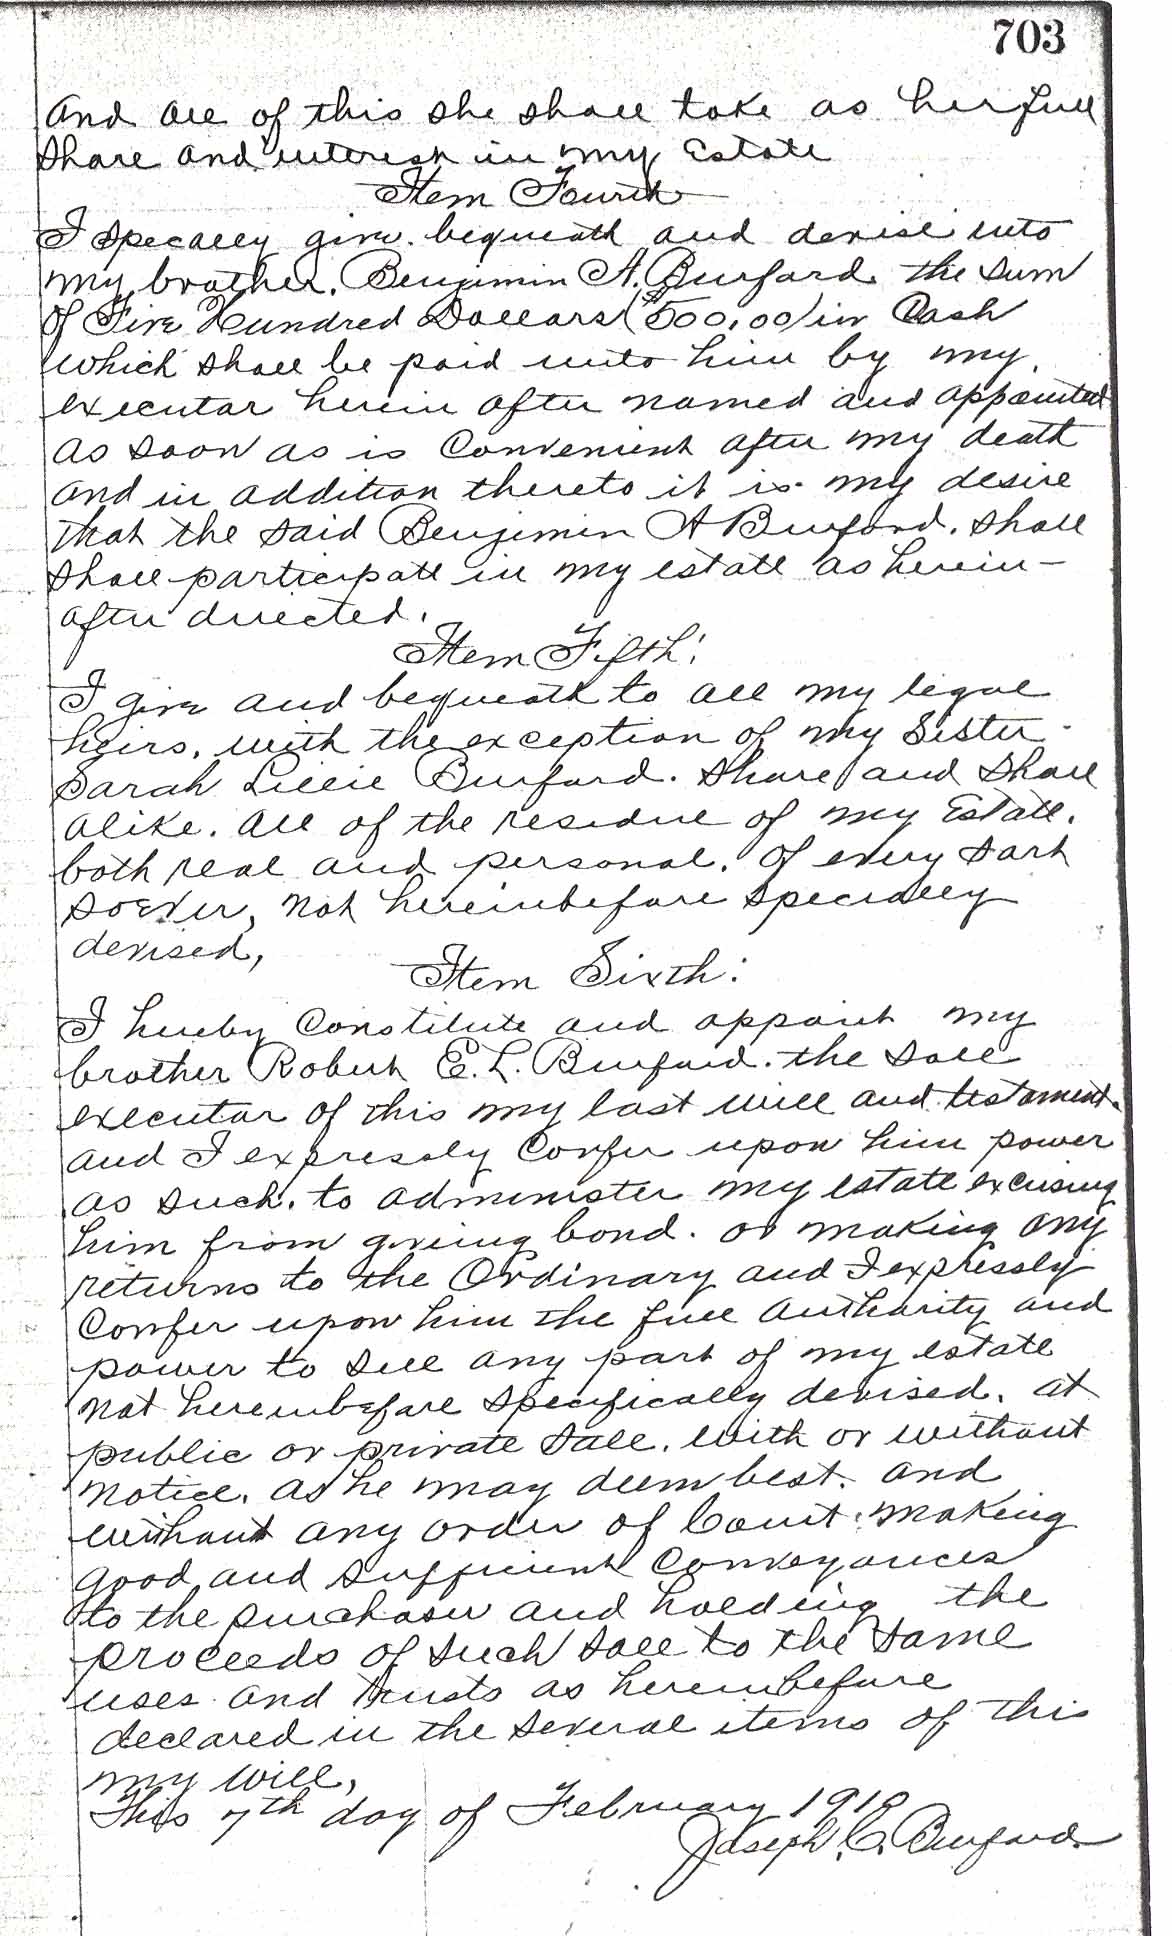 703
and all of this she shall take as her full
share and interest in my Estate
Item Fourth
I specally give. bequeath and devise unto
my brother. Benjamin A. Burford. the sum
of Five Hundred Dollars ($500.00) in Cash
which shall be paid unto him by my
executor herein after named and appointed
as soon as is convenient after my death
and in addition thereto it is my desire
that the said Benjimin A Burford. shall
shall participate in my estate as herein-
after directed.
Item Fifth:
I give and bequeath to all my legal
heirs, with the exception of my Sister
Sarah Lillie Burford. share and share
alike. all of the residue of my Estate.
both real and personal. of every sort
soever, not hereinbefore specially
devised,
Item Sixth:
I hereby constitute and appoint my
brother Robert E. L. Burford. the sole
executor of this my last will and testament.
and I expressly confer upon him power
as such. to administer my estate excusing
him from giving bond. or making any
returns to the Ordinary and I expressly
confer upon him the full authority and
power to sell any part of my estate
not hereinbefore specifically devised. at
public or private sale. with or without
notice. as he may deem best. and
without any order of Court. making
good and sufficient conveyances
to the purchaser and holding the
proceeds of such sale to the same
uses and trusts as hereinbefore
declared in the several items of this
my will,
This 7th day of February 1910
Joseph. C. Burford.